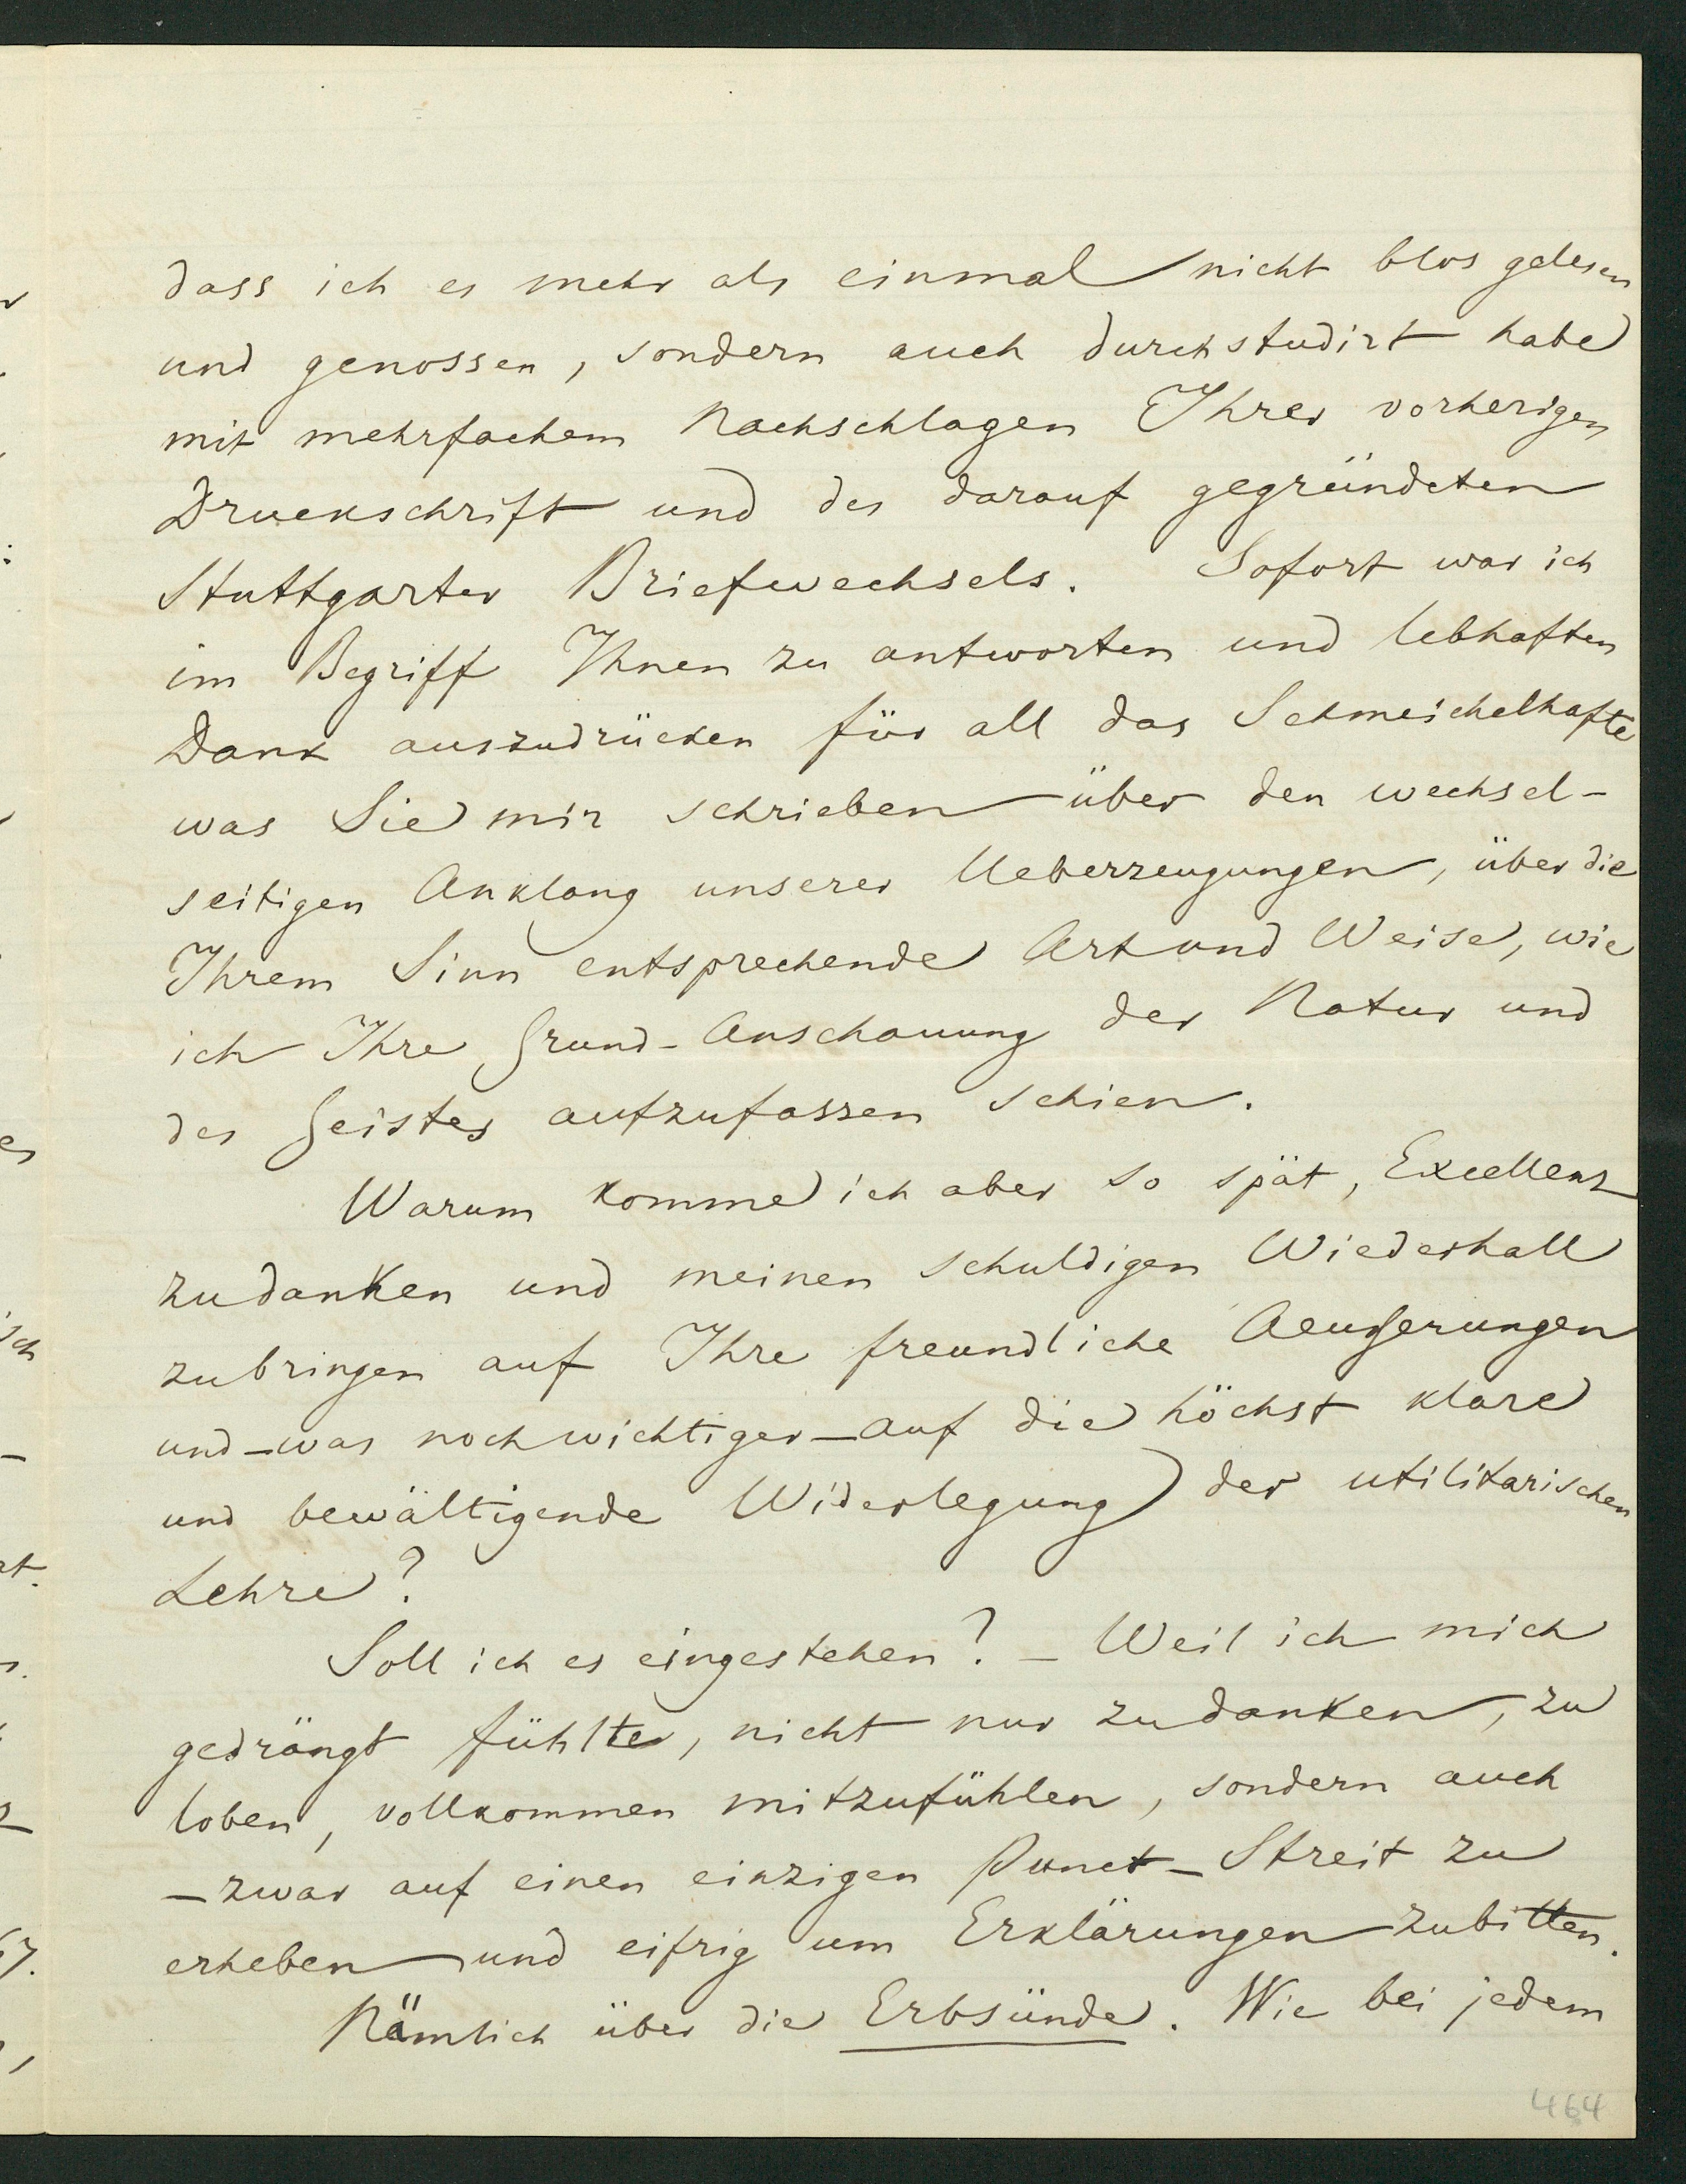 dass ich es mehr als einmal nicht blos gelesen
und genossen, sondern auch durchstudirt habe
mit mehrfachem Nachschlagen Ihrer vorherigen
Druckschrift und des darauf gegründeten
Stuttgarter Briefwechsels. Sofort war ich
im Begriff Ihnen zu antworten und lebhaften
Dank auszudrücken für all das Schmeichelhafte
was Sie mir schrieben über den wechsel-
seitigen Anklang unserer Ueberzeugungen, über die
Ihrem Sinn entsprechende Art und Weise, wie
ich Ihre Grund-Anschauung der Natur und
des Geistes aufzufassen schien.
Warum komme ich aber so spät, Excellenz
zu danken und meinen schuldigen Wiederhall
zubringen auf Ihre freundliche Aeußerungen
und – was noch wichtiger – auf die höchst klare
und bewältigende Widerlegung der utilitarischen
Lehre?
Soll ich es eingestehen? – Weil ich mich
gedrängt fühlte, nicht nur zu danken, zu
loben, vollkommen mitzufühlen, sondern auch
– zwar auf einen einzigen Punct – Streit zu
erheben und eifrig um Erklärungen zubitten.
Nämlich über die Erbsünde. Wie bei jedem
464